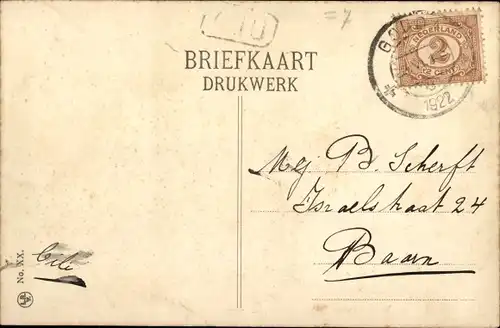 BRIEFKAART
DRUKWERK
NEDERLAND
2
CENT
1922
Mej B. Scherft
Israelstraat 24
Baarn
No. XX.